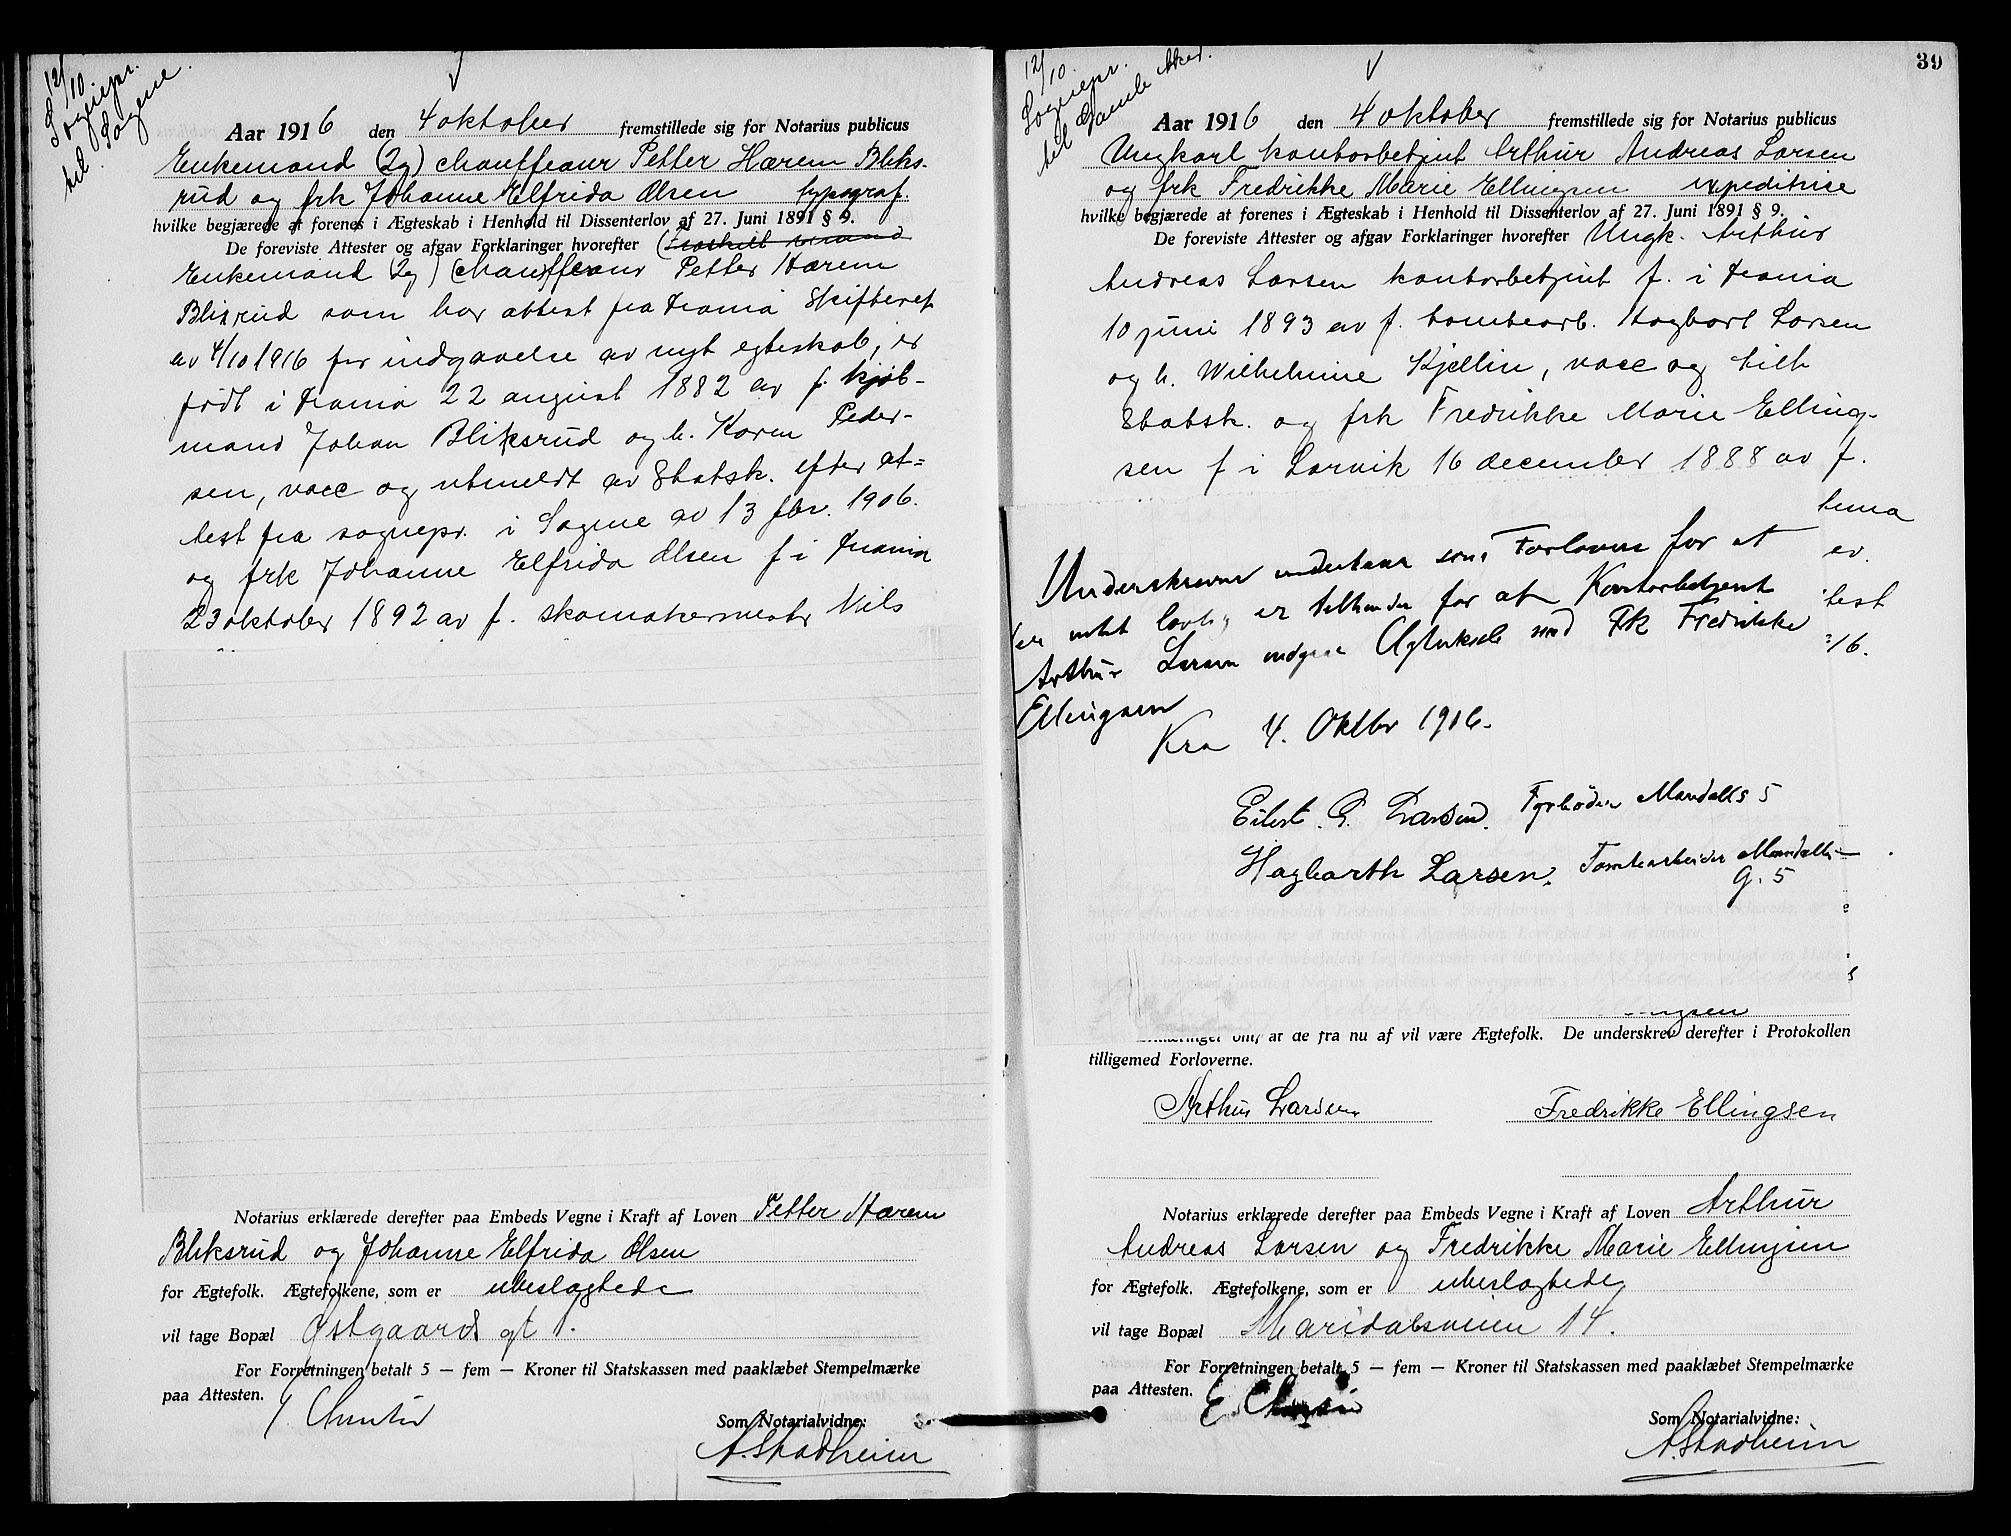 12/10.
Sognepr.
til Sogene.
Aar 1916 den 4 oktober fremstillede sig for Notarius publicus
Enkemand (2g) chauffeur Petter Harem Bliks-
rud og frk Johanne Elfrida Olsen typograf.
hvilke begjærede at forenes i Ægteskab i Henhold til Dissenterlov af 27. Juni 1891 § 9.
De foreviste Attester og afgav Forklaringer hvorefter
Enkemand (2g) chauffeur Petter Harem
Bliksrud som har attest fra Krania Skifteret
av 4/10 1916 for indgaaelse av nyt egteskab, er
født i Krania 22 august 1882 av f. kjøb-
mand Johan Bliksrud og h. Karen Peder-
sen, vacc og utmeldt av Statsk. efter at-
test fra sognepr. i Sagene av 13 fbr. 1906.
og frk Johanne Elfrida Olsen f i Krania
23 oktober 1892 av f. skomakermester Niels
Notarius erklærede derefter paa Embeds Vegne i Kraft af Loven Petter Harem
Bliksrud og Johanne Elfrida Olsen
for Ægtefolk. Ægtefolkene, som er ubeslagtede
vil tage Bopæl Østgaards gt 1.
For Forretningen betalt 5 — fem — Kroner til Statskassen med paaklæbet Stempelmærke
paa Attesten.
Som Notarialvidne:
A. Stadheim
39
12/10.
Sognepr.
til Gamle Aker.
Aar 1916 den 4 oktober fremstillede sig for Notarius publicus
Ungkarl kontorbetjent Arthur Andreas Larsen
og frk Fredrikke Marie Ellingsen expeditrise
hvilke begjærede at forenes i Ægteskab i Henhold til Dissenterlov af 27. Juni 1891 § 9.
De foreviste Attester og afgav Forklaringer hvorefter Ungk. Arthur
Andreas Larsen kontorbetjent f. i Krania
10 juni 1893 av f. tomtearb. Hagbart Larsen
og h. Wilhelmine Kjellin, vacc og tilh
Statsk. og frk Fredrikke Marie Elling-
sen f i Larvik 16 december 1888 av f.
Underskrevne indestaar som Forlovere for at
er intet lovlig er tilhinder for at Kontorbetjent
Arthur Larsen indgaar Ægteskab med Frk Fredrikke
Ellingsen
Kra 4. Oktbr 1916.
Eilert. G. Larsen. Fyrbøder Maridalls 5
Hagbarth Larsen. Tomtearbeider Maridalls
G. 5
test
16.
ngsen
om, at de fra nu af vil være Ægtefolk. De underskrev derefter i Protokollen
tilligemed Forloverne.
Arthur Larsen Fredrikke Ellingsen
Notarius erklærede derefter paa Embeds Vegne i Kraft af Loven Arthur
Andreas Larsen og Fredrikke Marie Ellingsen
for Ægtefolk. Ægtefolkene, som er ubeslagtede
vil tage Bopæl Maridalsveien 14.
For Forretningen betalt 5 — fem — Kroner til Statskassen med paaklæbet Stempelmærke
paa Attesten.
Som Notarialvidne:
A. Stadheim